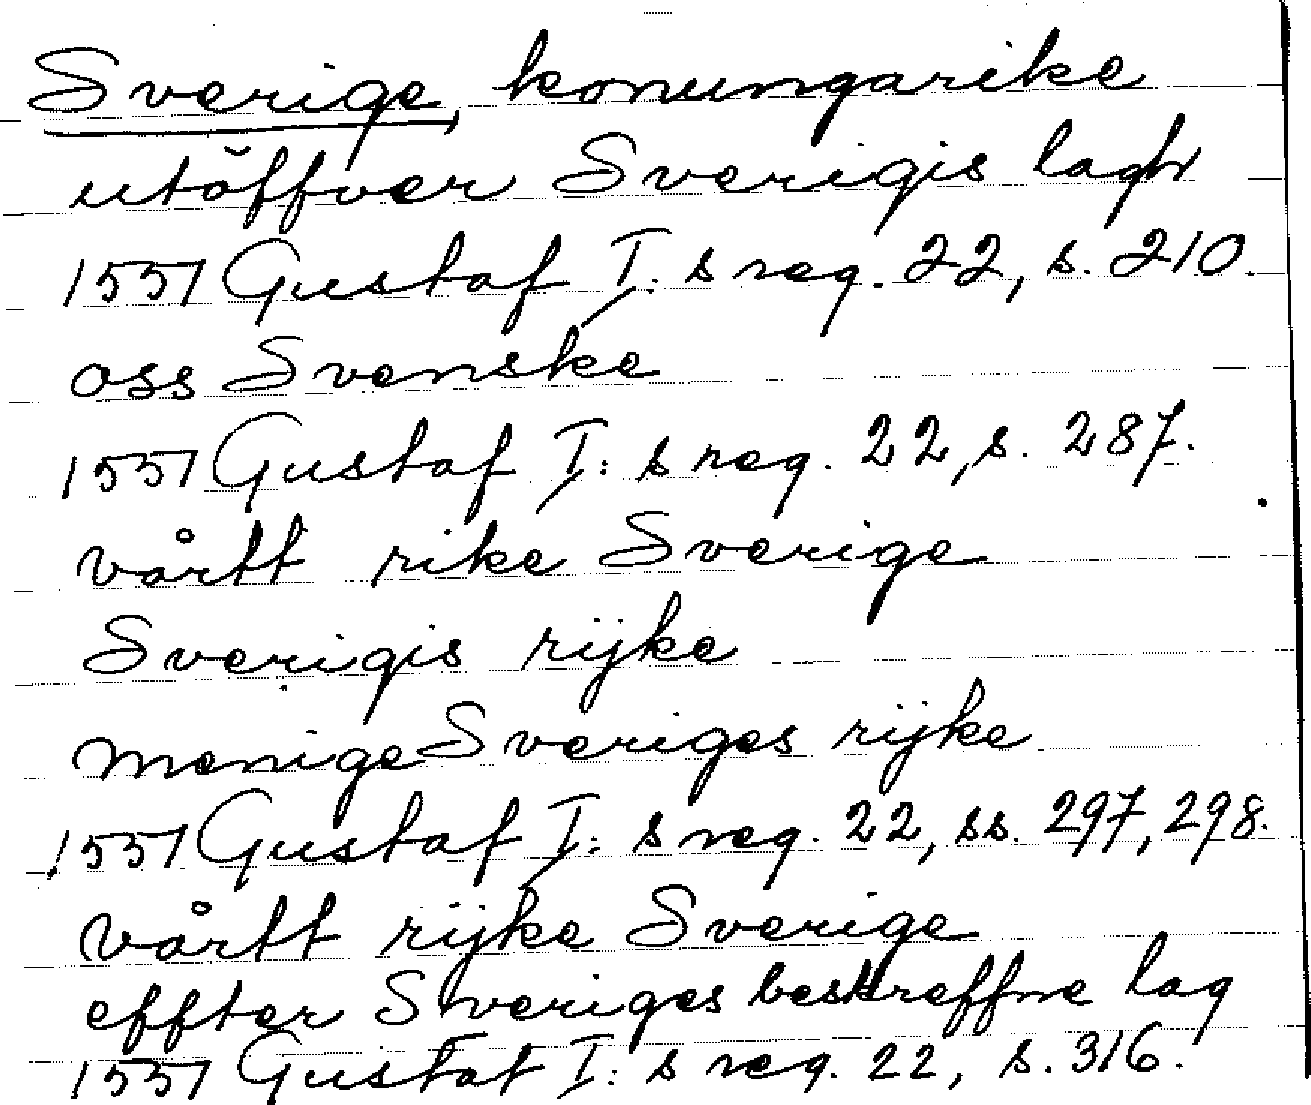 Sverige, konungarike
utöffver Sverigis lagh
1551 Gustaf I: s reg. 22, s. 210.
oss Svenske
1551 Gustaf I: s reg. 22, s. 287.
vårtt rike Sverige
Sverigis rijke
menige Sveriges rijke
1551 Gustaf I: s reg. 22, ss. 297, 298.
vårtt rijke Sverige
effter Sveriges beskreffne lag
1551 Gustaf I: s reg. 22, s. 316.